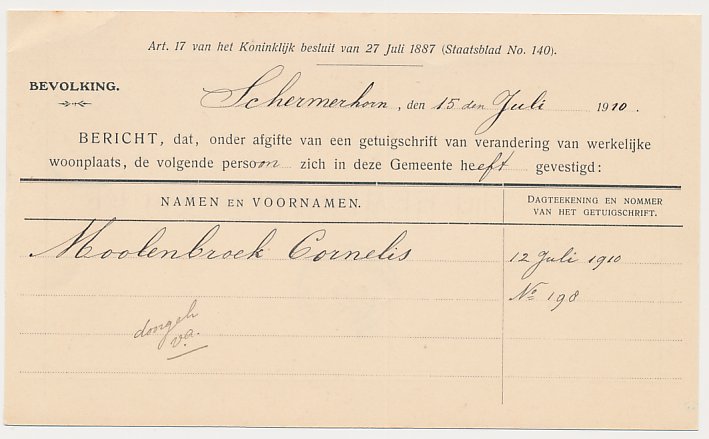 Art. 17 van het Koninklijk besluit van 27 Juli 1887 (Staatsblad No. 140).
BEVOLKING.
Schermerhorn, den 15 den Juli 1910.
BERICHT, dat, onder afgifte van een getuigschrift van verandering van werkelijke
woonplaats, de volgende persoon zich in deze Gemeente heeft gevestigd:
NAMEN EN VOORNAMEN.
DAGTEEKENING EN NOMMER
VAN HET GETUIGSCHRIFT.
Moolenbroek Cornelis
12 Juli 1910
No 198
v.a.